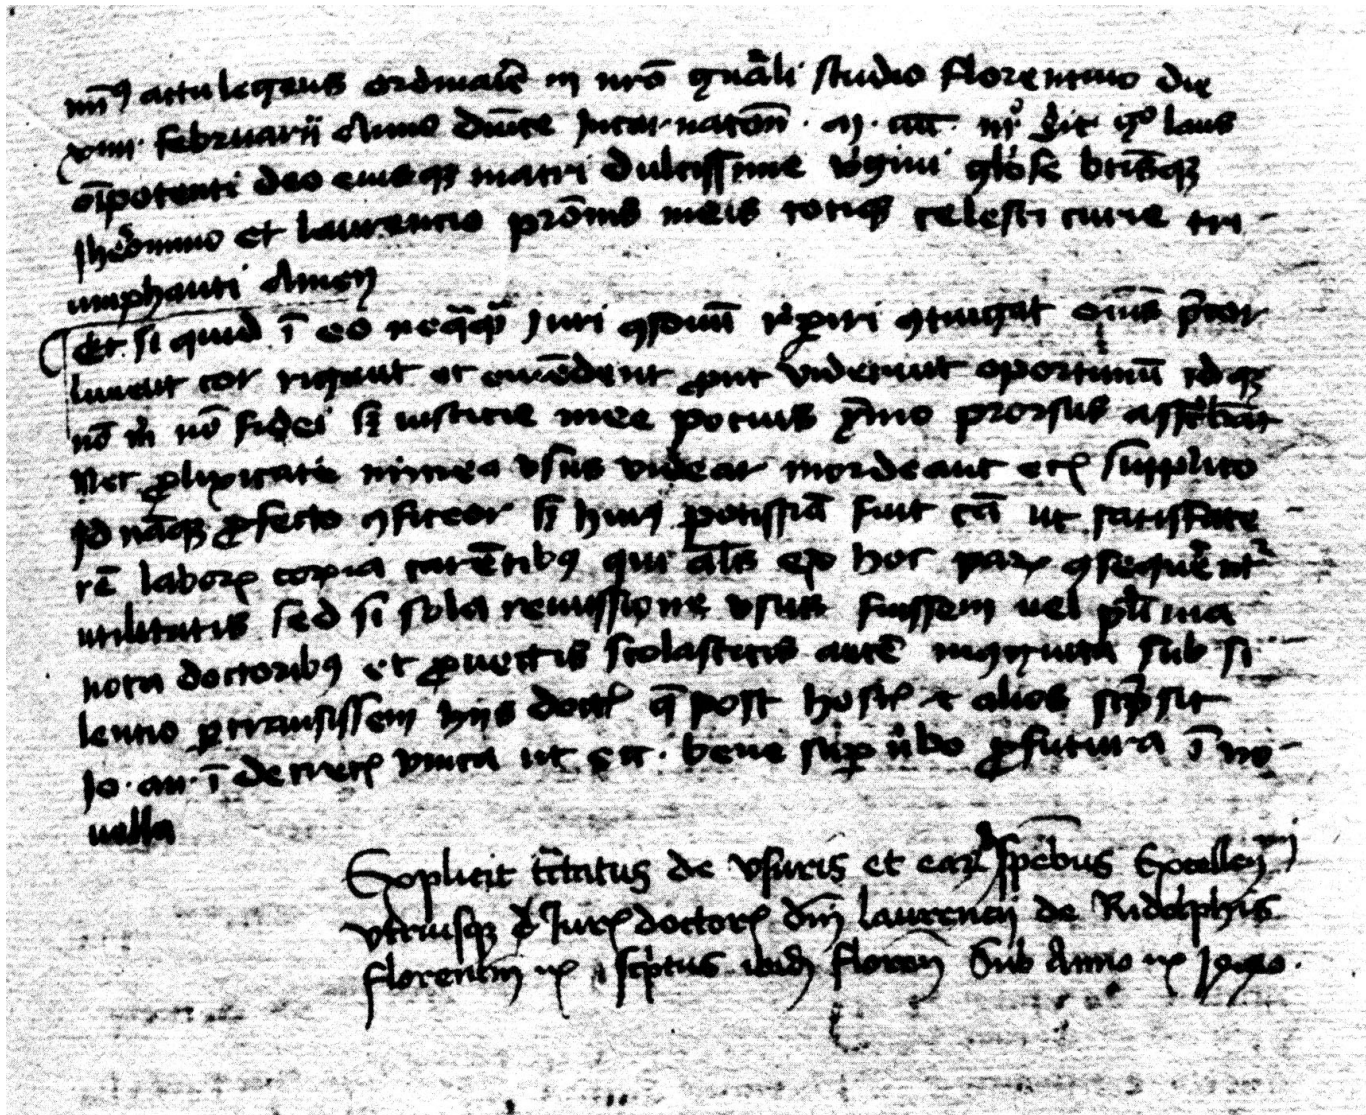 actu legens ordinarie in nro gnali studio florentino die
xviii · februarii Anno dnice Incarnatōn · M · cccc · iii° laus
oīpotenti deo eiusq matri dulcissime v'gini gl'ose btisq
Jheronimo et laurencio pronis meis totiq celesti curie tri-
umphanti Amen
Et si quid ī eo neqqȝ Juri 9sonū rep̄iri 9tingat oīus p̄cor
luneant cor rigant et emēdent prout viderint oportunū idq
nō m nō fidei sȝ iusticie mee potius prorsus ascribant
Nec prolixitate nimiea usus videar mordeant etc supplico
Id nāq profecto 9fiteor sȝ huiq potissia fuit cā ut satisface-
rē labor copia carētibȝ qui als ex hoc par 9sequerent
utilitatis sed si sola remissione usus fuissem vel
nota doctoribȝ et provectis scolasticis autē incognita sub si-
lentio pertransissem hijs doct q post hostē et alios scpsit
Jo · an · ī decret unica ut ecc · bene sup vbo profutura ī no-
uella
Explicit tctatus de vsuris et ear spēbus Excellen
vtriusq Jur doctor dnj laurencij de Ridolphis
florentin scptus ibidē floren Sub Anno 1440 ·